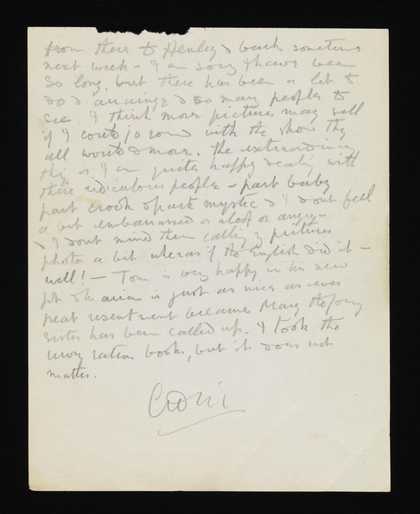 from there to Henley & back sometime
next week – I am sorry I have been
so long, but there has been a lot to
do & arrange & so many people to
see. I think more pictures may sell
if I could go round with the show they
all want &
thing is I am quite happy dealing with
these ridiculous people – part baby
part crook & part mystic & I don't feel
a bit embarrassed or aloof or angry –
& I don't mind them calling pictures
photos a bit whereas if the English did it –
well! – Tom is very happy in his new
job & is just as nice as ever
resentment because Mary the
sister has been called up. I took the
wrong ration books, but it does not
matter.